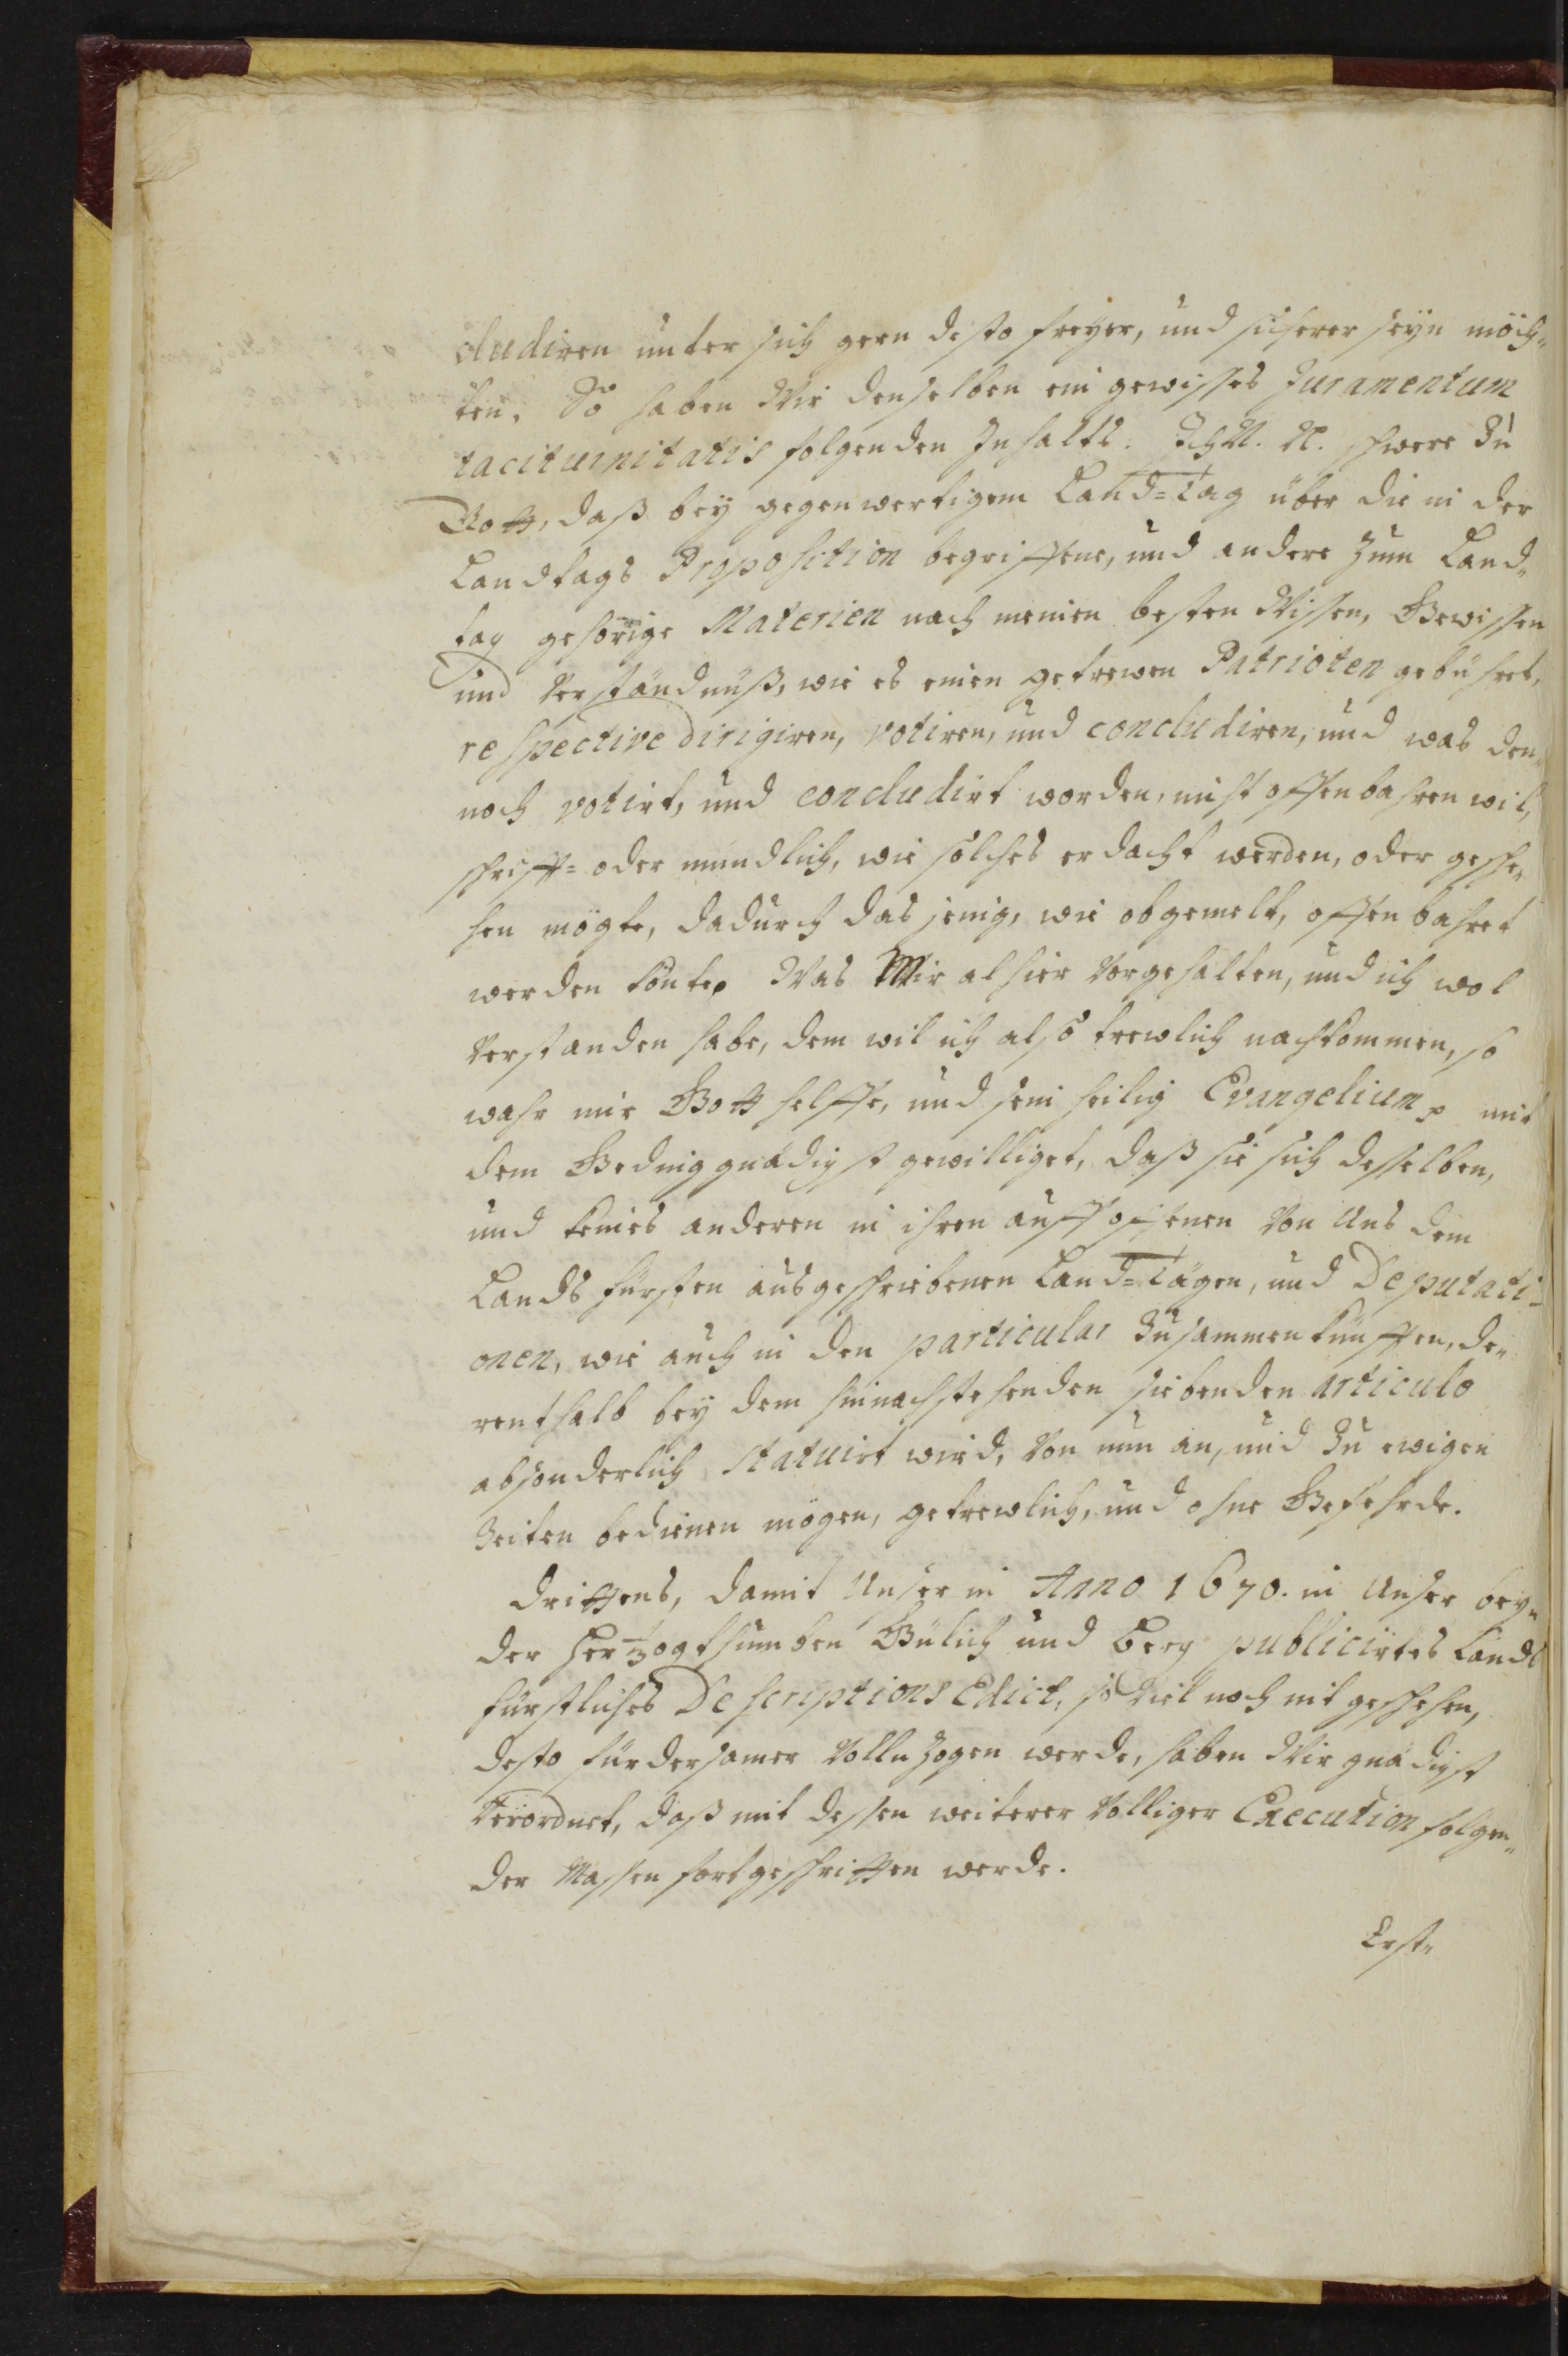 cludiren unter sich gern desto freyer, und sicherer seyn möch„
ten, So haben Wir denselben ein gewisses Juramentum
taciturnitatis folgenden Inhalts: Ich N. N. schwere Zu
Gott, daß bey gegenwertigem Land=Tag über die in der
Landtags Proposition begriffene, und andere Zum Land„
tag gehörige Materien nach meinen besten Wissen, Gewissen
und Verständnuß, wie es einen getrewen Patrioten gebühret,
respective dirigiren, votiren, und concludiren, und was den„
noch votirt, und concludirt worden, nicht offenbahren wil,
schrifft= oder mündlich, wie solches erdacht werden, oder gesche„
hen mögte, dadurch das jenig, wie obgemelt, offenbahret
werden könte. Was Mir alhier Vorgehalten, und ich wol
Verstanden habe, dem wil ich also trewlich nachkommen, so
wahr mir Gott helffe, und sein heilig Evangelium, mit
dem Geding gnädigst gewilliget, daß sie sich desselben,
und keines anderen in ihren auff offenen Von Uns dem
Lands fürsten ausgeschriebenen Land=Tägen, und Deputati-
onen, wie auch in den particular Zusammenkünfften, de„
renthalb bey dem hinnachstehenden siebenden articulo
absonderlich statuirt wird, Von nun an, und Zu ewigen
Zeiten bedienen mögen, getrewlich, und ohne Gefehrde.
Drittens, damit Unser in Anno 1670. in Unser bey„
der Hertzogthumben Gülich und Berg publicirtes Lands
fürstliches Descriptions Edict, so Viel noch nit geschehen,
desto fürdersamer Vollnzogen werde, haben Wir gnädigst
Verordnet, daß mit dessen weiterer Völliger Execution folgen„
der Massen fortgeschritten werde.
Erst„